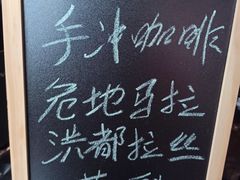 手冲咖啡
危地马拉
洪都拉丝